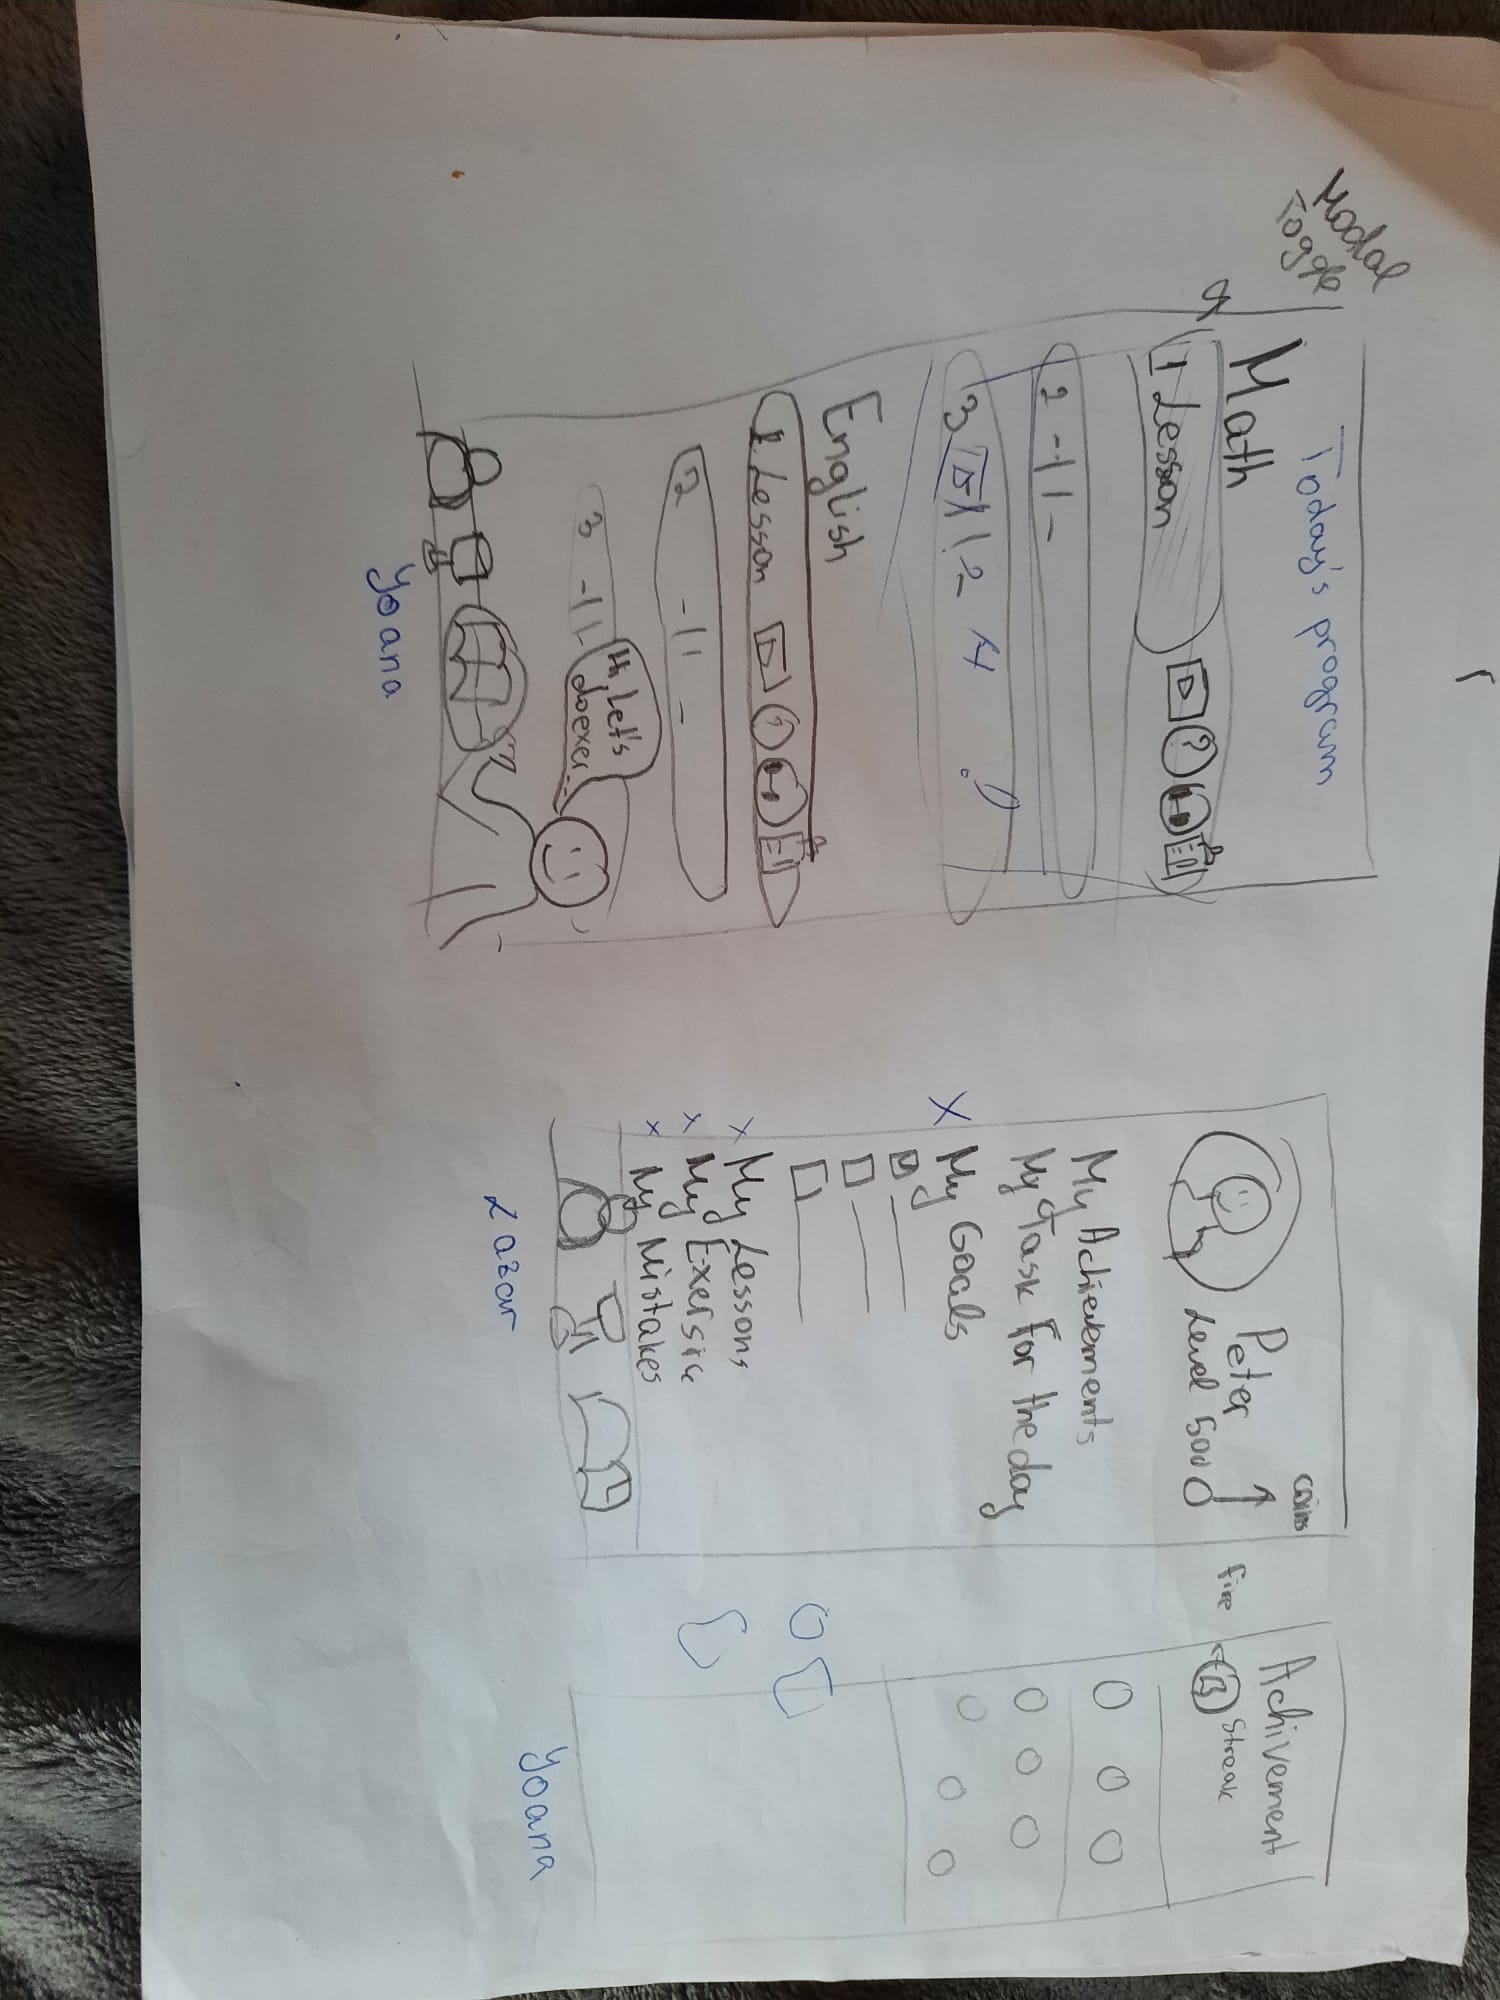 Modal
Toggle
Today's program
Math
1 Lesson
?
2 -11-
3
English
1. Lesson
?
2 -11-
3 -11-
Hi, Let's
do exer...
Yoana
coins
Peter
Level 500
My Achievements
My Task For the day
X My Goals
x My Lessons
x My Exersic
x My Mistakes
Lazar
Achivement
fire
13 Streak
Yoana